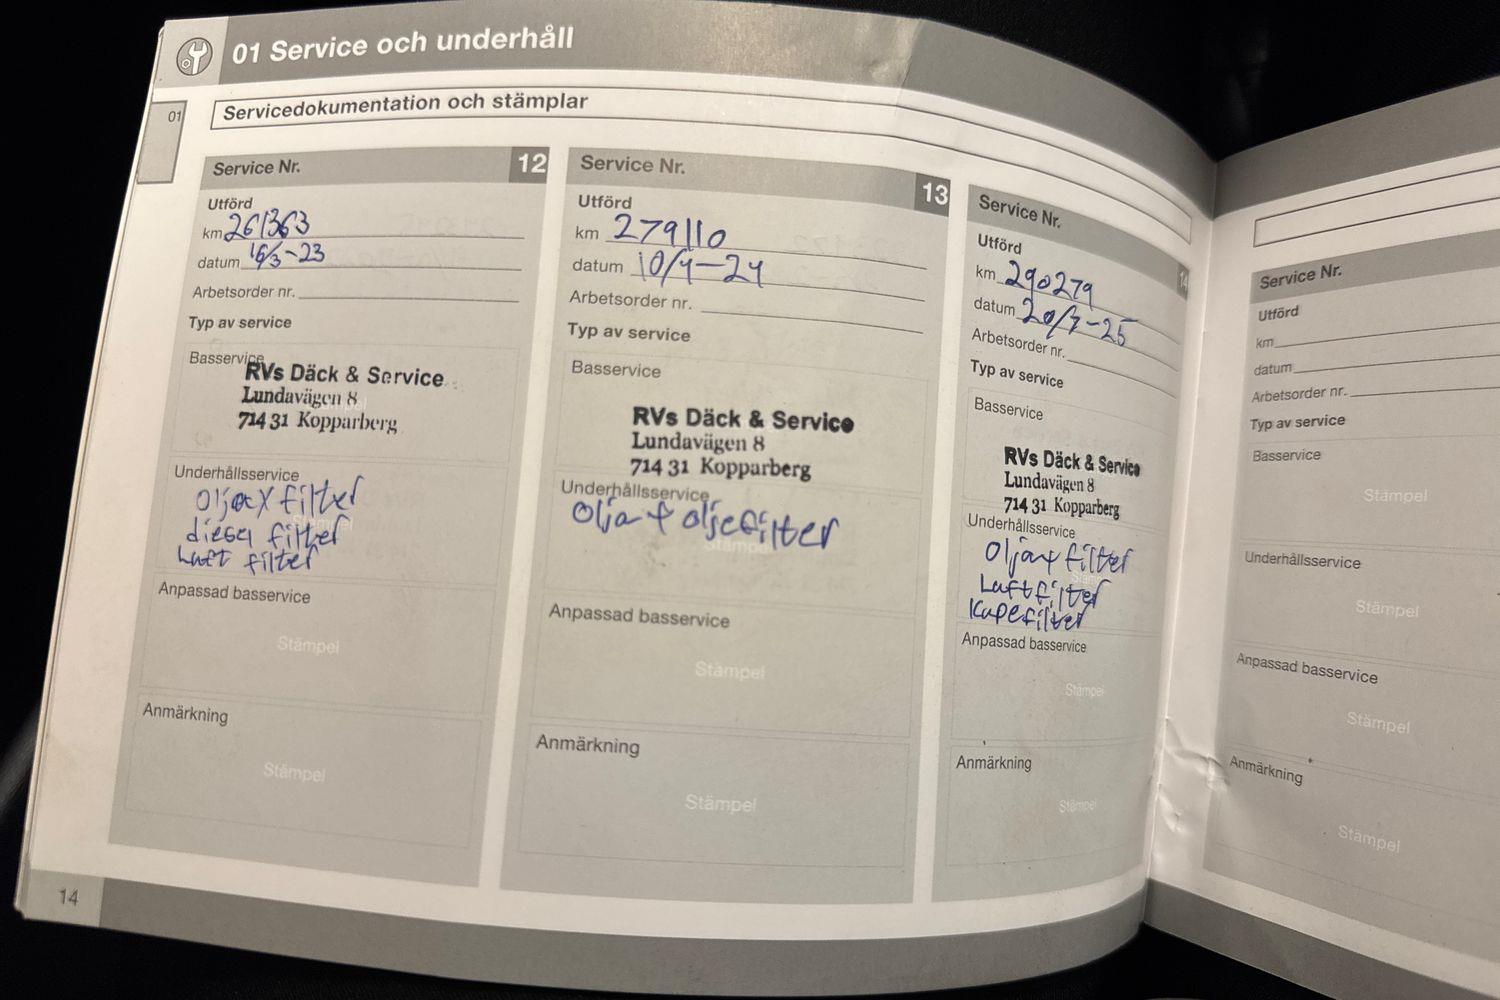 01 Service och underhåll
01
Servicedokumentation och stämplar
Service Nr. 12
Utförd
km 261363
datum 16/3-23
Arbetsorder nr.
Typ av service
Basservice
RVs Däck & Service
Lundavägen 8
714 31 Kopparberg
Stämpel
Underhållsservice
Olja + filter
diesel filter
Luft filter
Stämpel
Anpassad basservice
Stämpel
Anmärkning
Stämpel
14
Service Nr. 13
Utförd
km 279110
datum 10/4-24
Arbetsorder nr.
Typ av service
Basservice
RVs Däck & Service
Lundavägen 8
714 31 Kopparberg
Underhållsservice
Olja + oljefilter
Stämpel
Anpassad basservice
Stämpel
Anmärkning
Stämpel
Service Nr. 14
Utförd
km 290279
datum 20/3-25
Arbetsorder nr.
Typ av service
Basservice
RVs Däck & Service
Lundavägen 8
714 31 Kopparberg
Underhållsservice
Olja + filter
Luftfilter
Kupefilter
Anpassad basservice
Stämpel
Anmärkning
Stämpel
Service Nr.
Utförd
km
datum
Arbetsorder nr.
Typ av service
Basservice
Stämpel
Underhållsservice
Stämpel
Anpassad basservice
Stämpel
Anmärkning
Stämpel